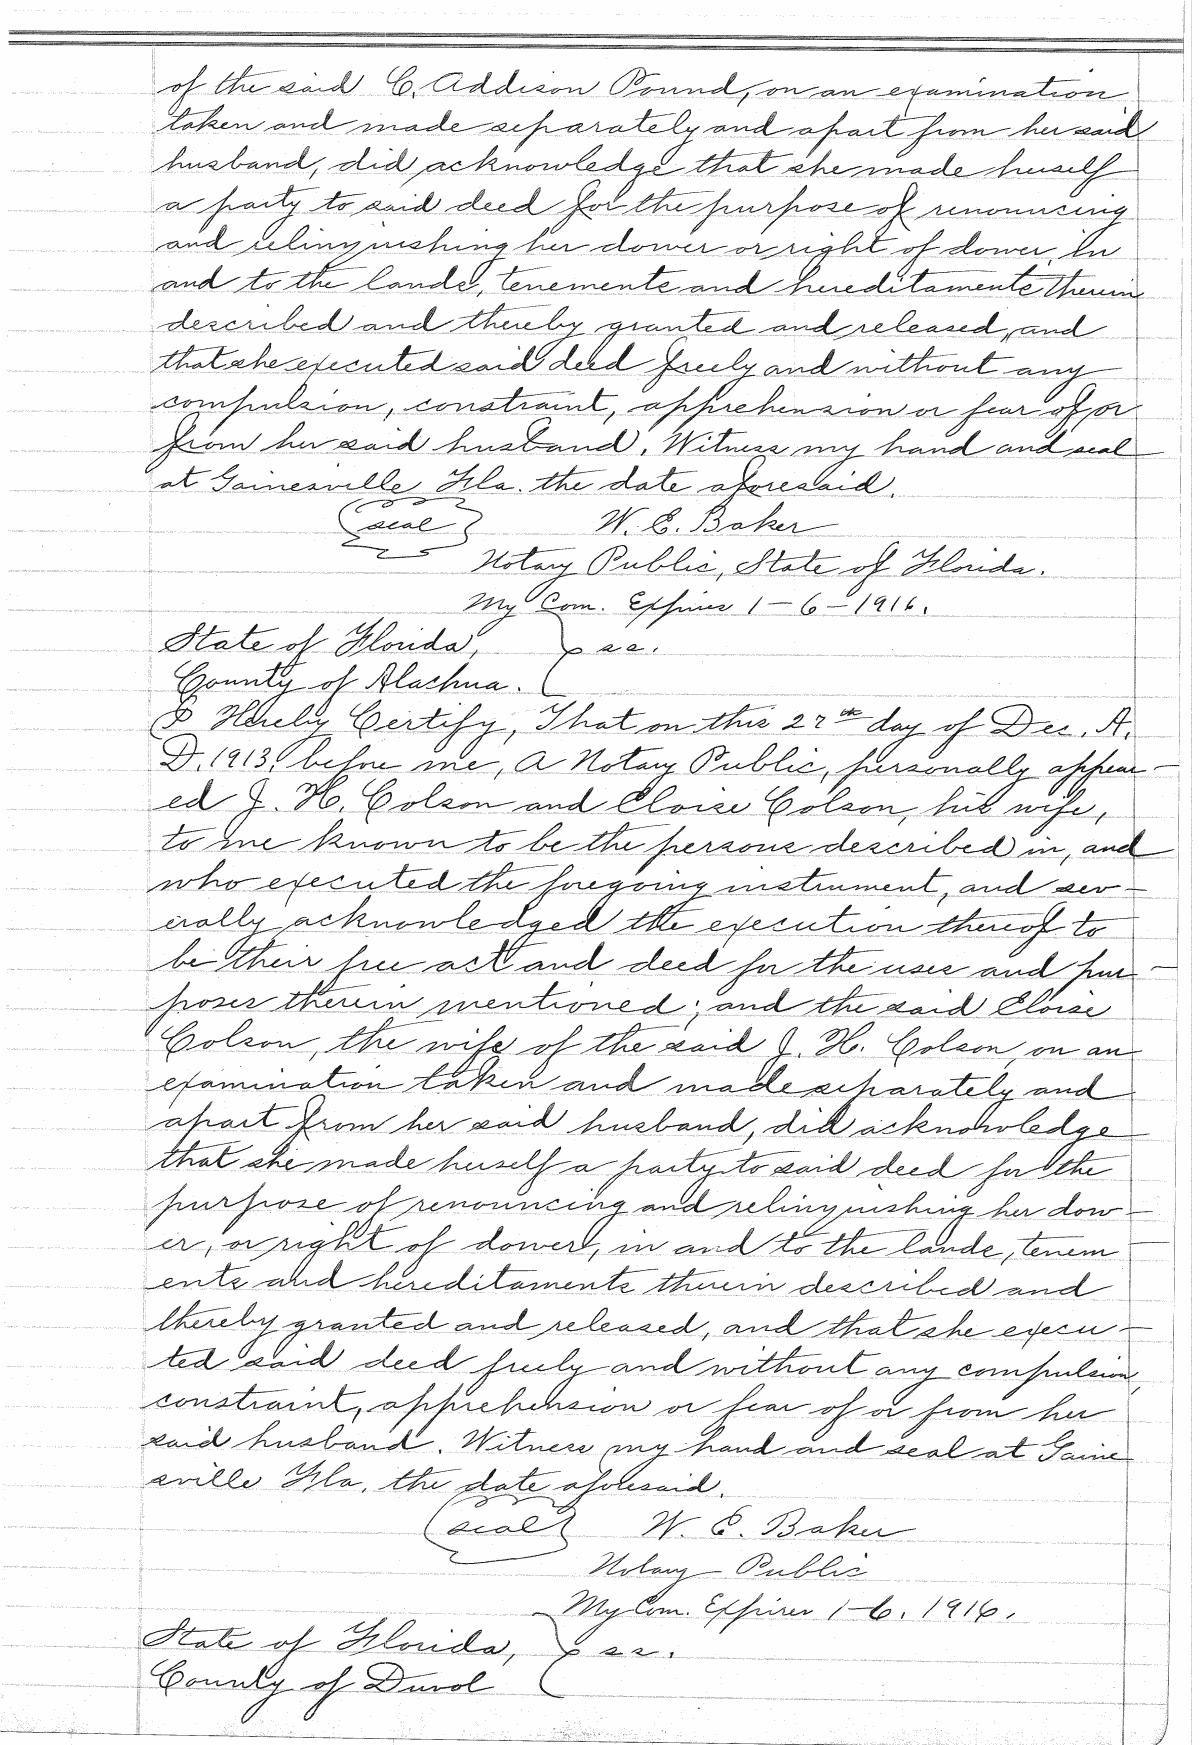 of the said C. Addison Pound, on an examination
taken and made separately and apart from her said
husband, did acknowledge that she made herself
a party to said deed for the purpose of renouncing
and relinquishing her dower or right of dower, In
and to the lands, tenements and hereditaments therein
described and thereby granted and released, and
that she executed said deed freely and without any
compulsion, constraint, apprehension or fear of or
from her said husband. Witness my hand and seal
at Gainesville Fla. the date aforesaid.
(seal) W. E. Baker
Notary Public, State of Florida.
My Com. Expires 1-6-1916.
State of Florida, } ss.
County of Alachua. (
I Hereby Certify, That on this 27th day of Dec. A.
D. 1913, before me, A Notary Public, personally appear-
ed J. H. Colson and Eloise Colson, his wife,
to me known to be the persons described in, and
who executed the foregoing instrument, and sev-
erally acknowledged the execution thereof to
be their free act and deed for the uses and pur-
poses therein mentioned; and the said Eloise
Colson, the wife of the said J. H. Colson, on an
examination taken and made separately and
apart from her said husband, did acknowledge
that she made herself a party to said deed for the
purpose of renouncing and relinquishing her dow-
er, or right of dower, in and to the lands, tenem-
ents and hereditaments therein described and
thereby granted and released, and that she execu-
ted said deed freely and without any compulsion,
constraint, apprehension or fear of or from her
said husband. Witness my hand and seal at Gaine
sville Fla, the date aforesaid.
(seal) W. E. Baker
Notary Public
My Com. Expires 1-6. 1916.
State of Florida, } ss.
County of Duvol (